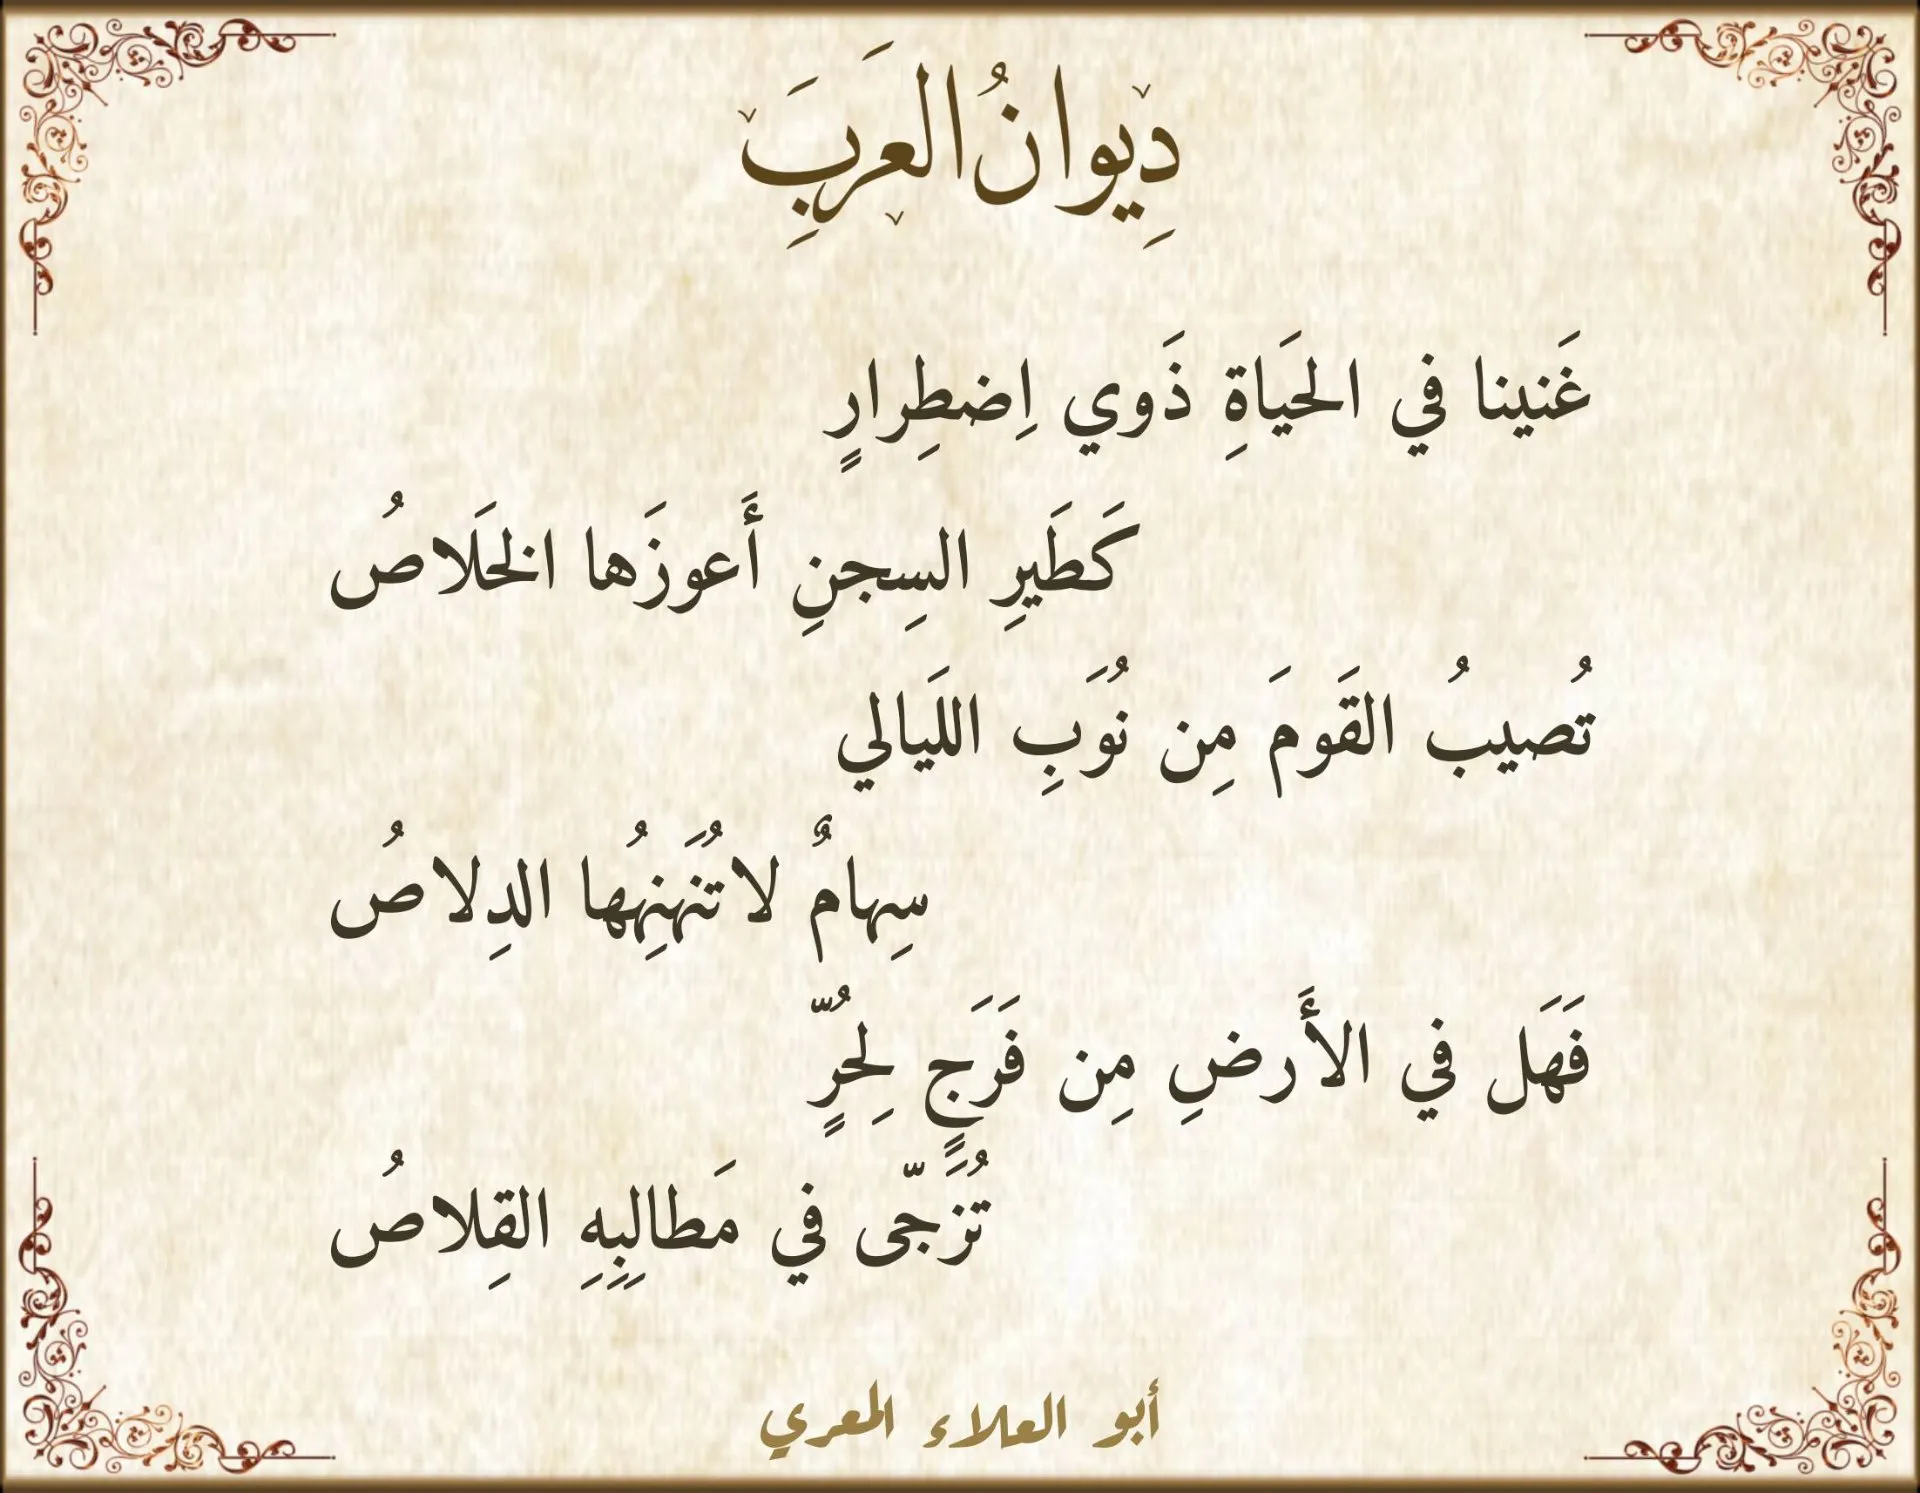 دِيوانُ العَرَبِ
غَنينا في الحَياةِ ذَوي اِضطِرارٍ
كَطَيرِ السِجنِ أَعوزَها الخَلاصُ
تُصيبُ القَومَ مِن نُوَبِ اللَيالي
سِهامٌ لا تُنَهنِهُها الدِلاصُ
فَهَل في الأَرضِ مِن فَرَجٍ لِحُرٍّ
تُزَجّى في مَطالِبِهِ القِلاصُ
أبو العلاء المعري